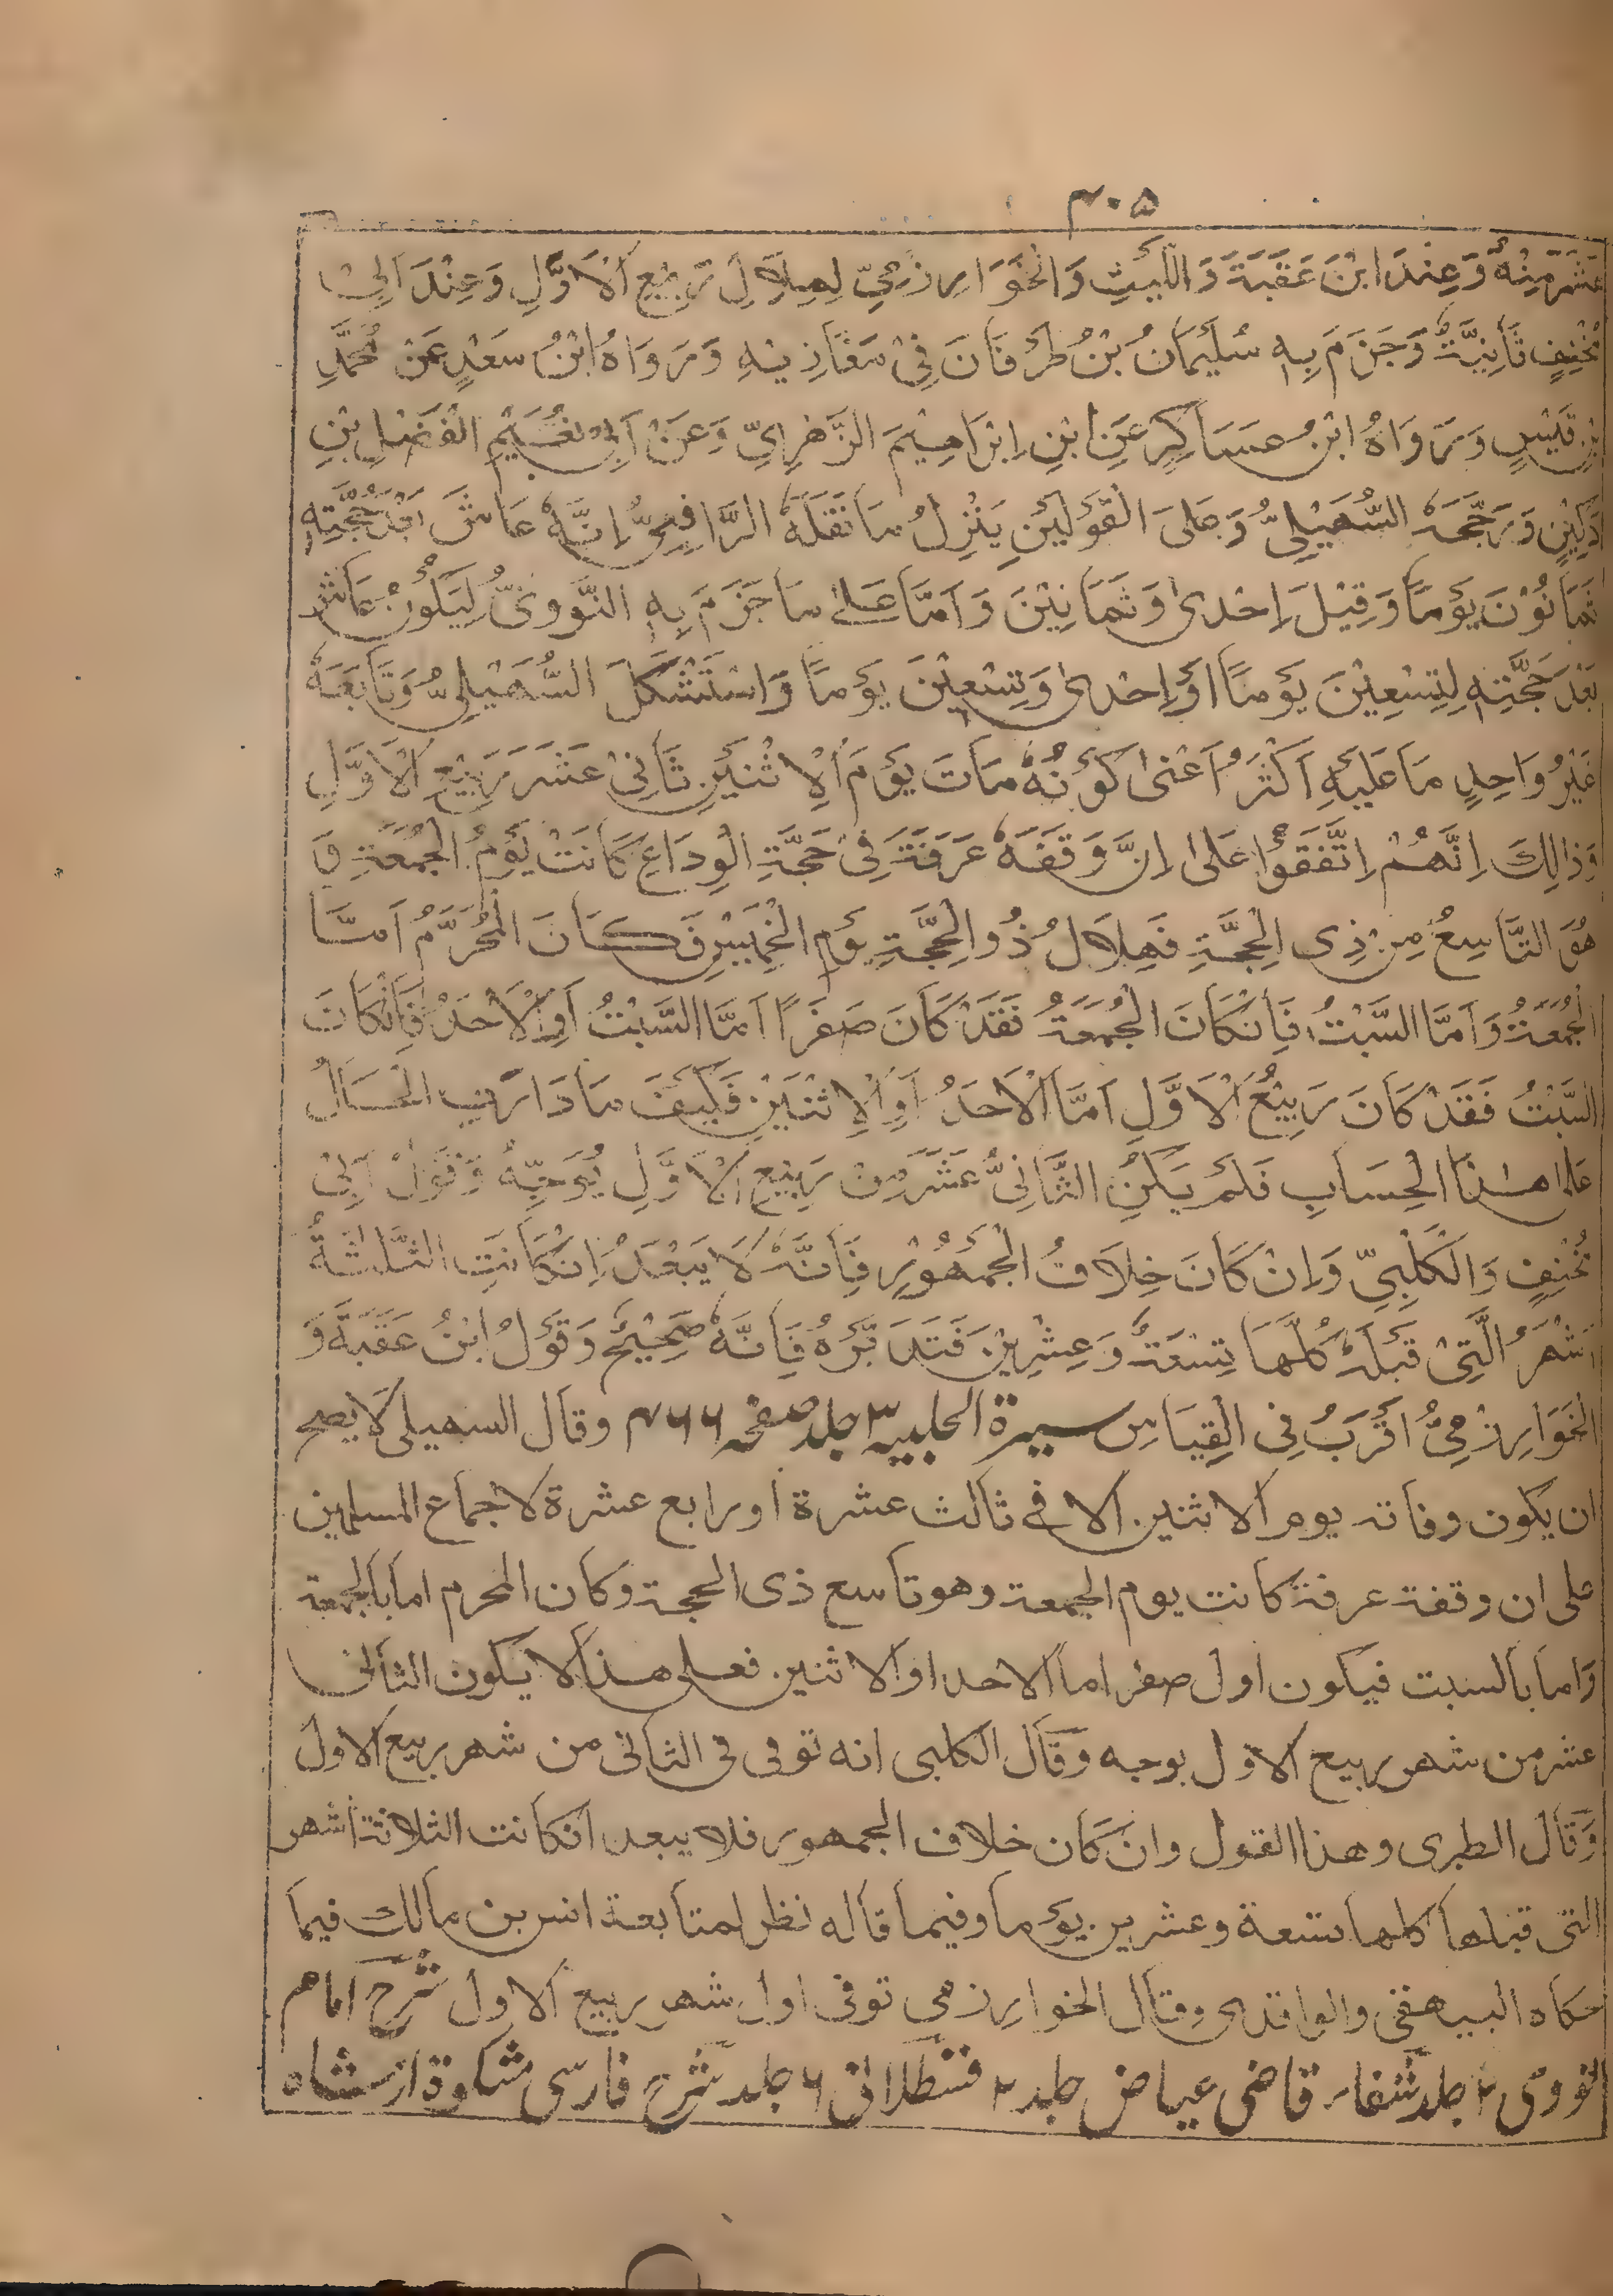 ۳۰۵
عَشَرَ مِنْهُ وَعِنْدَ ابْنَ عَقَبَةَ وَاللَّيْثِ وَالْخَوَارِزْمِيِّ لِهِلَالِ رَبِيْعِ الْاَوَّلِ وَعِنْدَ اَبِيْ
مُخْنِفٍ ثَانِيَّةٌ وَجَزَمَ بِهٖ سُلَيْمَانُ بْنُ طَرْفَانَ فِيْ مَغَازِيْهِ وَرَوَاهُ ابْنُ سَعْدٍ عَنْ مُحَمَّدِ
بْنِ قَيْسٍ وَرَوَاهُ ابْنُ عَسَاكِرِ عَنِ ابْنِ اِبْرَاهِيْمَ الزَّهْرِيِّ وَعَنْ اَبِيْ نُعَيْمِ الْفَضْلِ بْنِ
دَكِيْنٍ وَرَجَّحَهُ السُّهَيْلِيُّ وَعَلَى الْقَوْلَيْنِ يَنْزِلُ مَا نَقَلَهُ الرَّافِعِيُّ اِنَّهٗ عَاشَ بَعْدَ حَجَّتِهٖ
ثَمَانُوْنَ يَوْمًا وَقِيْلَ اِحْدٰى وَثَمَانِيْنَ وَاَمَّا عَلٰى مَا جَزَمَ بِهِ النَّوَوِيُّ لِيَكُوْنُ عَاشَ
بَعْدَ حَجَّتِهٖ لِتِسْعِيْنَ يَوْمًا اَوْ اِحْدٰى وَتِسْعِيْنَ يَوْمًا وَاسْتَشْكَلَ السُّهَيْلِيُّ وَتَابَعَهٗ
غَيْرُ وَاحِدٍ مَا عَلَيْهِ اَكْثَرُ اَعْنٰى كَوْنُهٗ مَاتَ يَوْمَ الْاِثْنَيْنِ ثَانِيْ عَشَرَ رَبِيْعِ الْاَوَّلِ
وَذَالِكَ اِنَّهُمْ اِتَّفَقُوْا عَلٰى اِنَّ وَقَفَهٗ عَرَفَةَ فِيْ حَجَّةِ الْوِدَاعِ كَانَتْ يَوْمُ الْجُمَعَةِ وَ
هُوَ التَّاسِعُ مِنْ ذِى الْحِجَّةِ فَهِلَالُ ذُو الْحِجَّةِ يَوْمِ الْخَمِيْسِ فَكَانَ الْمُحَرَّمُ اَمَّا
الْجُمَعَةُ وَاَمَّا السَّبْتُ فَاِنْكَانَ الْجُمَعَةُ فَقَدْ كَانَ صَفَرًا اَمَّا السَّبْتُ اَوِ الْاَحَدُ فَاِنْكَانَ
السَّبْتُ فَقَدْ كَانَ رَبِيْعُ الْاَوَّلِ اَمَّا الْاَحَدُ اَوِ الْاِثْنَيْنِ فَكَيْفَ مَا دَارَتِ الْحَالُ
عَلٰى هٰذَا الْحِسَابِ فَلَمْ يَكُنِ الثَّانِيُّ عَشَرَ مِنْ رَبِيْعِ الْاَوَّلِ بِوَجْهٍ وَقَوْلُ اَبِيْ
مُخْنِفٍ وَالْكَلْبِيِّ وَاِنْ كَانَ خِلَافُ الْجُمْهُوْرِ فَاِنَّهٗ لَا يَبْعَدُ اِنْكَانَتِ الثَّلٰثَةُ
اَشْهَرُ الَّتِيْ قَبْلَهٗ كُلُّهَا تِسْعَةٌ وَعِشْرِيْنَ فَتَدَبَّرْهُ فَاِنَّهٗ صَحِيْحٌ وَقَوْلُ ابْنُ عَقَبَةَ وَ
الْخَوَارِزْمِيُّ اَقْرَبُ فِى الْقِيَاسِ سیرۃ الحلبیہ ۳ جلد صفحہ ۴۶۶ وقال السهيلى لا يصح
ان يكون وفاته يوم الاثنين الا فى ثالث عشرة او رابع عشرة لاجماع المسلمين
على ان وقفة عرفة كانت يوم الجمعة وهو تاسع ذى الحجة وكان المحرم اما بالجمعة
واما بالسبت فيكون اول صفر اما الاحد او الاثنين فعلى هذا لا يكون الثانى
عشر من شهر ربيع الاول بوجه وقال الكلبى انه توفى فى الثانى من شهر ربيع الاول
وقال الطبرى وهذا القول وان كان خلاف الجمهور فلا يبعد انكانت الثلاثة اشهر
التى قبلها كلها تسعة وعشرين يوما وفيما قاله نظر لمتابعة انس بن مالك فيما
حكاه البيهقى والواقدى وقال الخوارزمى توفى اول شهر ربيع الاول شرح امام
النووى ۲ جلد شفاء قاضى عياض جلد ۲ قسطلانى ۶ جلد شرح فارسى مشكوة از شاه